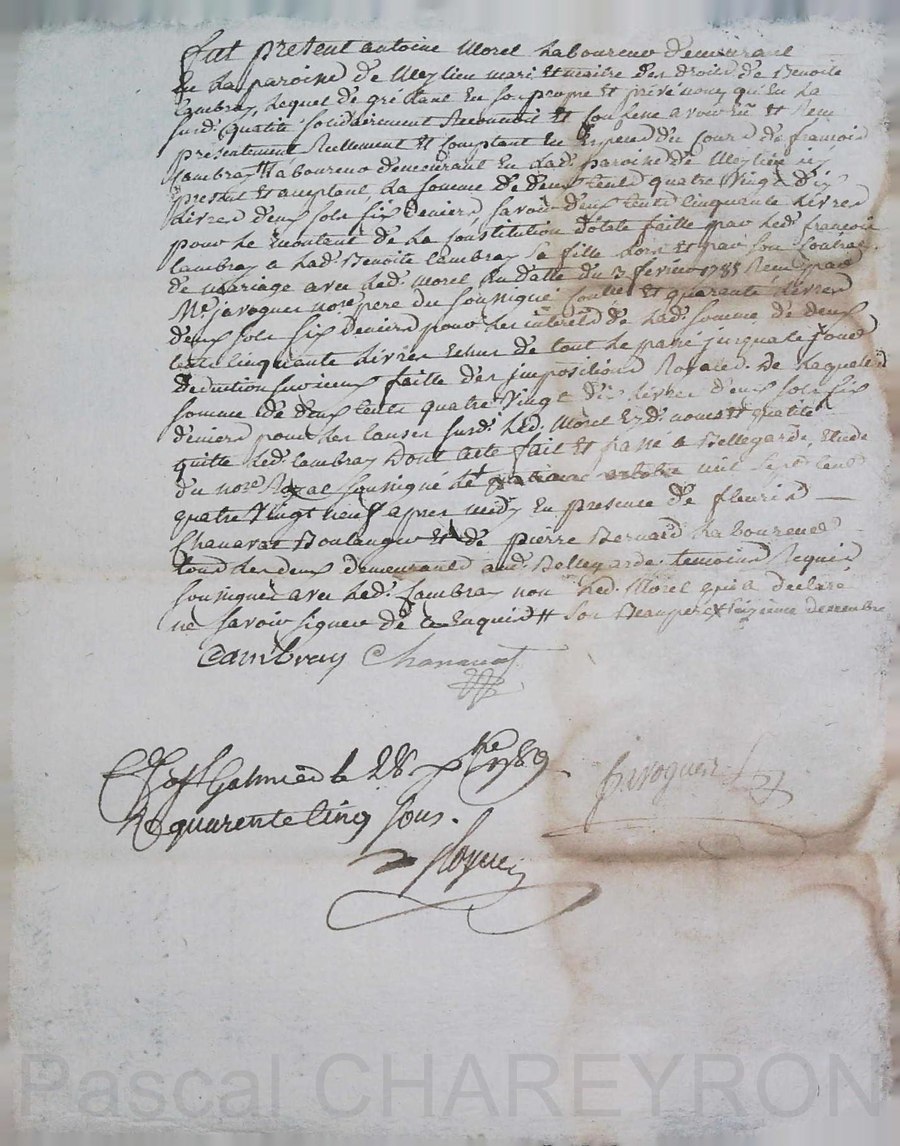 fut present antoine Morel Laboureur demeurant
En La paroisse de Meylieu mari Et maitre des droits de Benoite
Cambray Lequel de gré tant En son propre Et privé nom qu'En La
surd. qualité solidairement Reconnoit Et Confesse avoir Eu Et Reçu
presentement Reellement Et Comptant En Especes du Cours de françois
Cambray Laboureur demeurant En Lad. paroisse de Meylieu icy
present Et acceptant La somme de deux Cents quatre Vingt dix
Livres deux sols six deniers savoir deux Cents Cinquante Livres
pour Le montant de La Constitution d'otale faitte par Led. françois
Cambray a Lad. Benoite Cambray sa fille Lors Et par son Contrat
de mariage avec Led. Morel En datte du 3 fevrier 1785 Reçu par
Me. javogues nore. pere du soussigné Et quarente Livres
deux sols six deniers pour Les interets de Lad. somme de deux
Cents Cinquante Livres Echus de tout Le passé jusqu'a ce jour
deduction faitte des jmpositions Royales. De Laquelle
somme de deux Cents quatre Vingt dix Livres deux sols six
deniers pour Les Causes surd. Led. Morel Ezd. noms Et qualités
quitte Led. Cambray Dont acte fait Et passé a Bellegarde Etude
du nore. Royal soussigné Le mil sept Cent
quatre Vingt neuf apres midy En presence de fleurie
Chanavat Boulanger Et de pierre Bernard Laboureur
tous Les deux demeurants aud. Bellegarde temoins Requis
soussignés avec Led. Cambray non Led. Morel qui a declaré
ne savoir signer de ce Enquis # son Beaupere x seizieme decembre
Cambray Chanavat
javogues
Cllé a St Galmier le 28 xbre 1789
R quarente Cinq sous.